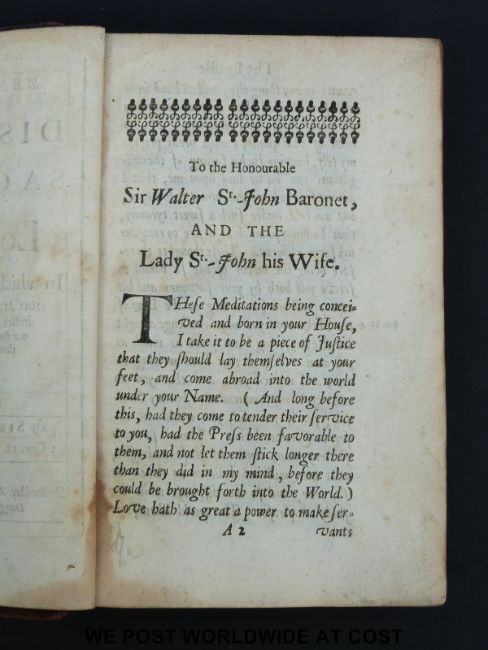 To the Honourable
Sir Walter St.-John Baronet,
AND THE
Lady St.-John his Wife.
THese Meditations being concei-
ved and born in your House,
I take it to be a piece of Justice
that they should lay themselves at your
feet, and come abroad into the world
under your Name. ( And long before
this, had they come to tender their service
to you, had the Press been favorable to
them, and not let them stick longer there
than they did in my mind, before they
could be brought forth into the World.)
Love hath as great a power to make ser-
A 2 vants
WE POST WORLDWIDE AT COST